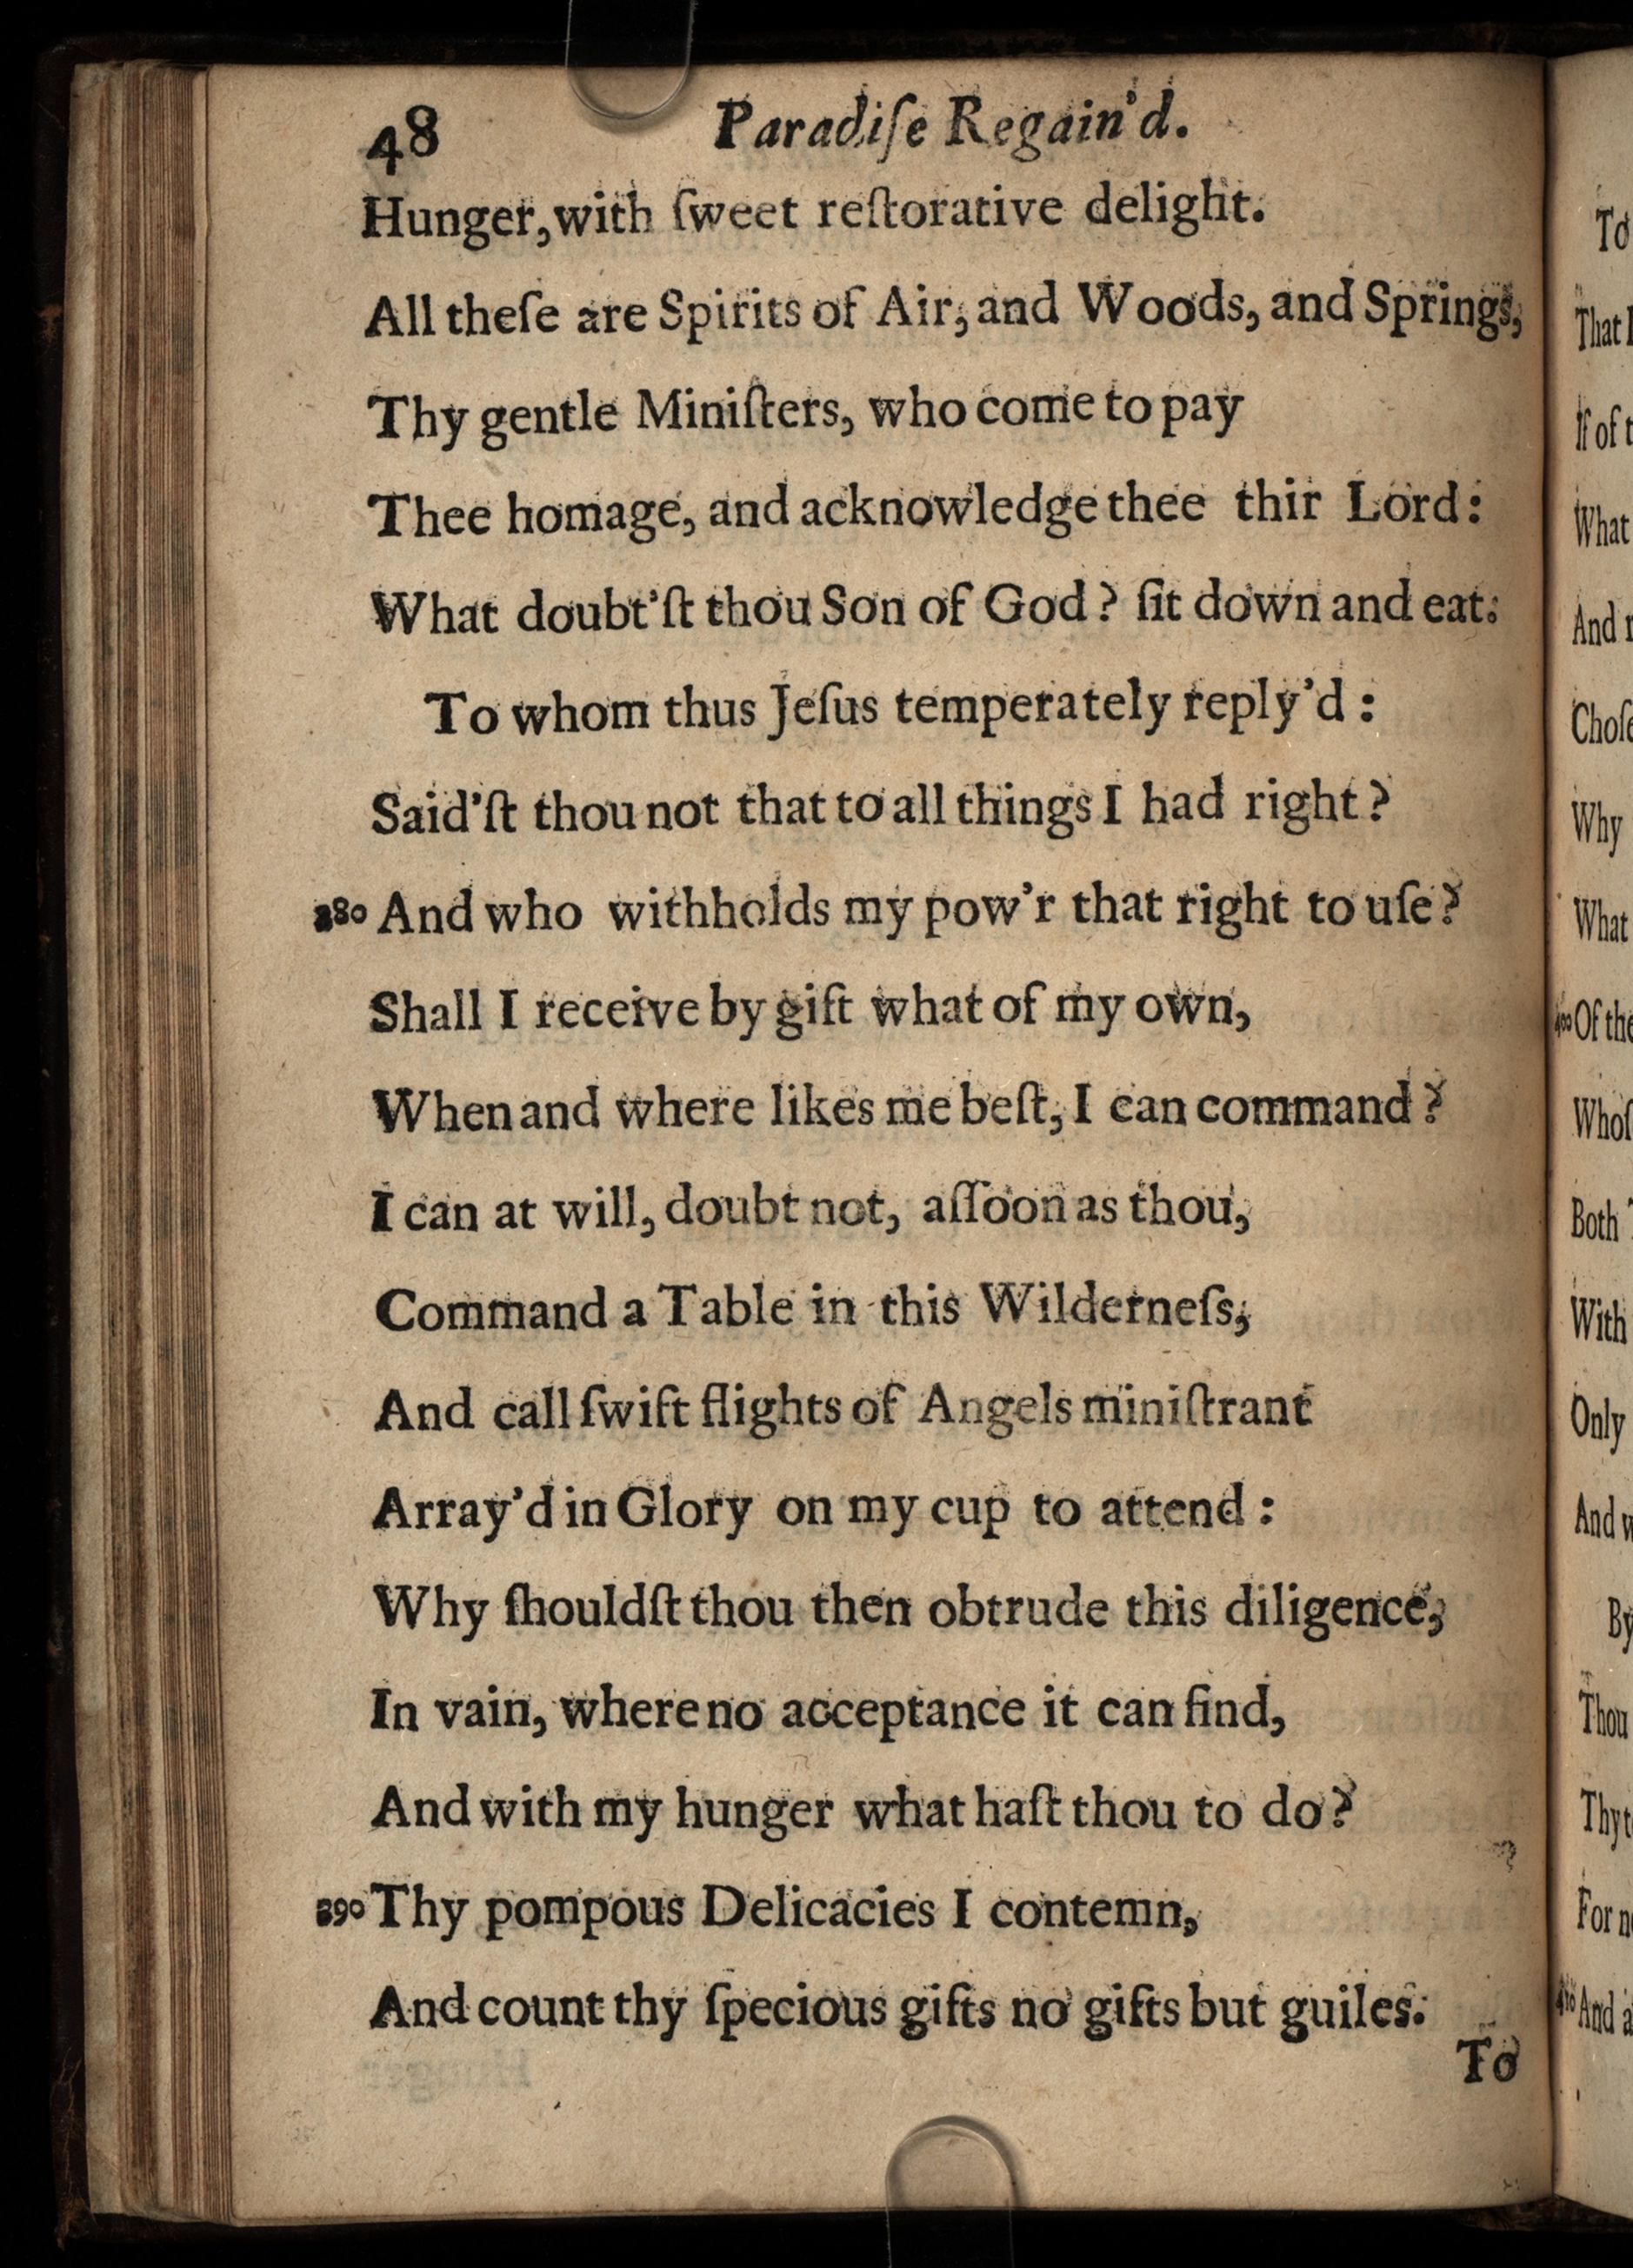 48 Paradiſe Regain'd.
Hunger, with ſweet reſtorative delight.
All theſe are Spirits of Air, and Woods, and Springs,
Thy gentle Miniſters, who come to pay
Thee homage, and acknowledge thee thir Lord:
What doubt'ſt thou Son of God? ſit down and eat.
To whom thus Jeſus temperately reply'd:
Said'ſt thou not that to all things I had right?
380 And who withholds my pow'r that right to uſe?
Shall I receive by gift what of my own,
When and where likes me beſt, I can command?
I can at will, doubt not, aſſoon as thou,
Command a Table in this Wilderneſs,
And call ſwift flights of Angels miniſtrant
Array'd in Glory on my cup to attend:
Why ſhouldſt thou then obtrude this diligence,
In vain, where no acceptance it can find,
And with my hunger what haſt thou to do?
390 Thy pompous Delicacies I contemn,
And count thy ſpecious gifts no gifts but guiles.
To
To
That
If of
What
And
Choſe
Why
What
400 Of the
Whoſ
Both
With
Only
And
By
Thou
Thy
For
410 And